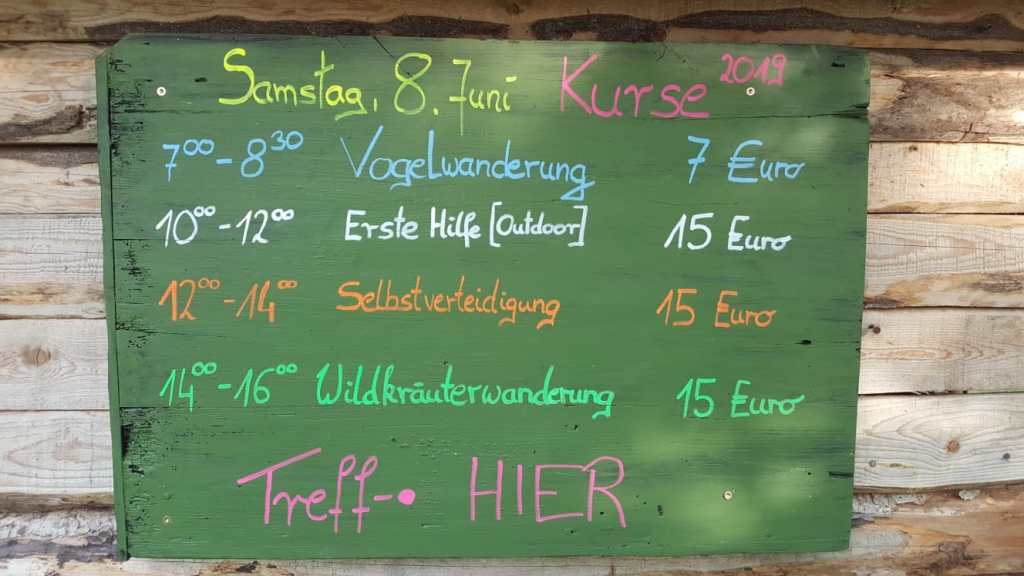 Samstag, 8. Juni Kurse 2019
7⁰⁰-8³⁰ Vogelwanderung 7 Euro
10⁰⁰-12⁰⁰ Erste Hilfe [Outdoor] 15 Euro
12⁰⁰-14⁰⁰ Selbstverteidigung 15 Euro
14⁰⁰-16⁰⁰ Wildkräuterwanderung 15 Euro
Treff-• HIER